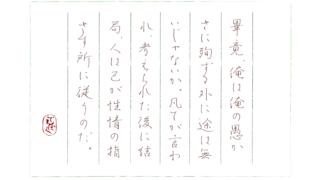 畢竟、俺は俺の愚か
さに殉ずる外に途は無
いじゃないか。凡てが言わ
れ、考えられた後に結
局、人は己が性情の指
さす所に従うのだ。